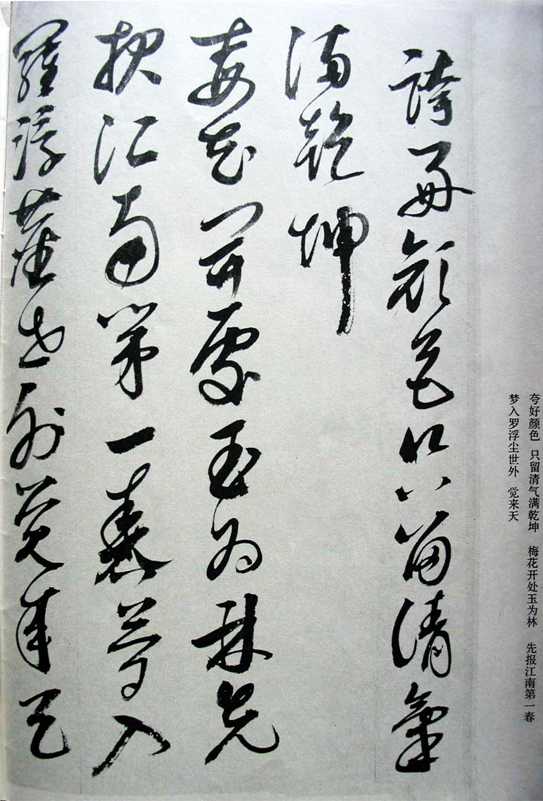 夸好颜色 只留清气满乾坤 梅花开处玉为林 先报江南第一春
梦入罗浮尘世外 觉来天
誇好顔色只留清氣
滿乾坤
梅花開處玉為林先
報江南第一春夢入
羅浮塵世外覺來天